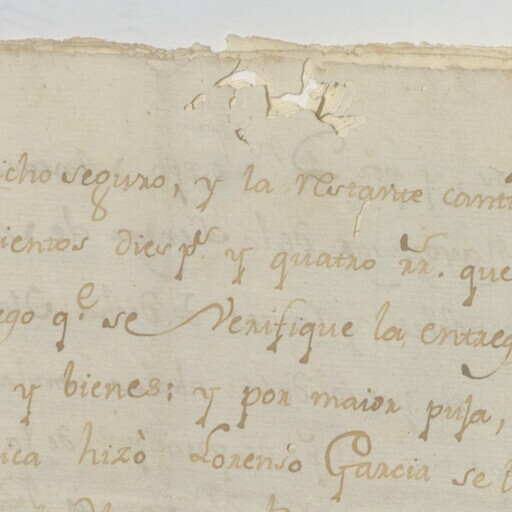 icho seguro, y la restante canti
ientos dies p.s y quatro rr.s que
ego q.e se Verifique la entreg
y bienes; y por maior puja,
ica hizò Lorenso Garcia se l